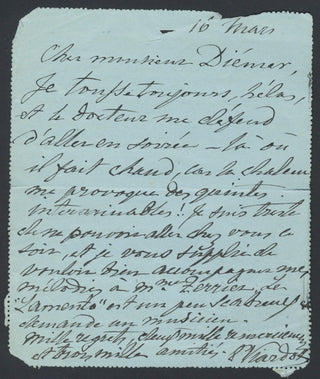 16 Mars
Cher monsieur Diémer,
Je tousse toujours, hélas,
et le docteur me défend
d'aller en soirée – là où
il fait chaud, car la chaleur
me provoque des quintes
interminables! Je suis triste
de ne pouvoir aller chez vous ce
soir, et je vous supplie de
vouloir bien accompagner mes
mélodies à Mme Ferrier, le
"Lamento" est un peu scabreux et
demande un musicien.
Mille regrets, deux mille remerciements
et trois mille amitiés. P. Viardot